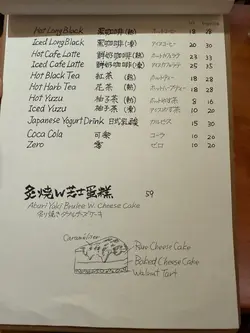 Hot Long Black 黑咖啡 (熱) 18 28
Iced Long Black 黑咖啡 (凍) アイスコーヒー 20 30
Hot Cafe Latte 鮮奶咖啡 (熱) ホットカフェラテ 23 33
Iced Cafe Latte 鮮奶咖啡 (凍) アイスカフェラテ 25 35
Hot Black Tea 紅茶 (熱) ホットティー 18 28
Hot Harb Tea 花茶 (熱) ホットハーブティー 18 28
Hot Yuzu 柚子茶 (熱) ホットゆず茶 16
Iced Yuzu 柚子茶 (凍) アイスゆず茶 20 30
Japanese Yogurt Drink 日式乳酸 カルピス 20 30
Coca Cola 可樂 コーラ 10 20
Zero 零 ゼロ 10 20
炙燒W芝士蛋糕 59
Aburi Yaki Brulee W. Cheese Cake
炙り焼きダブルチーズケーキ
Caramelizer
Raw Cheese Cake
Baked Cheese Cake
Walnut Tart